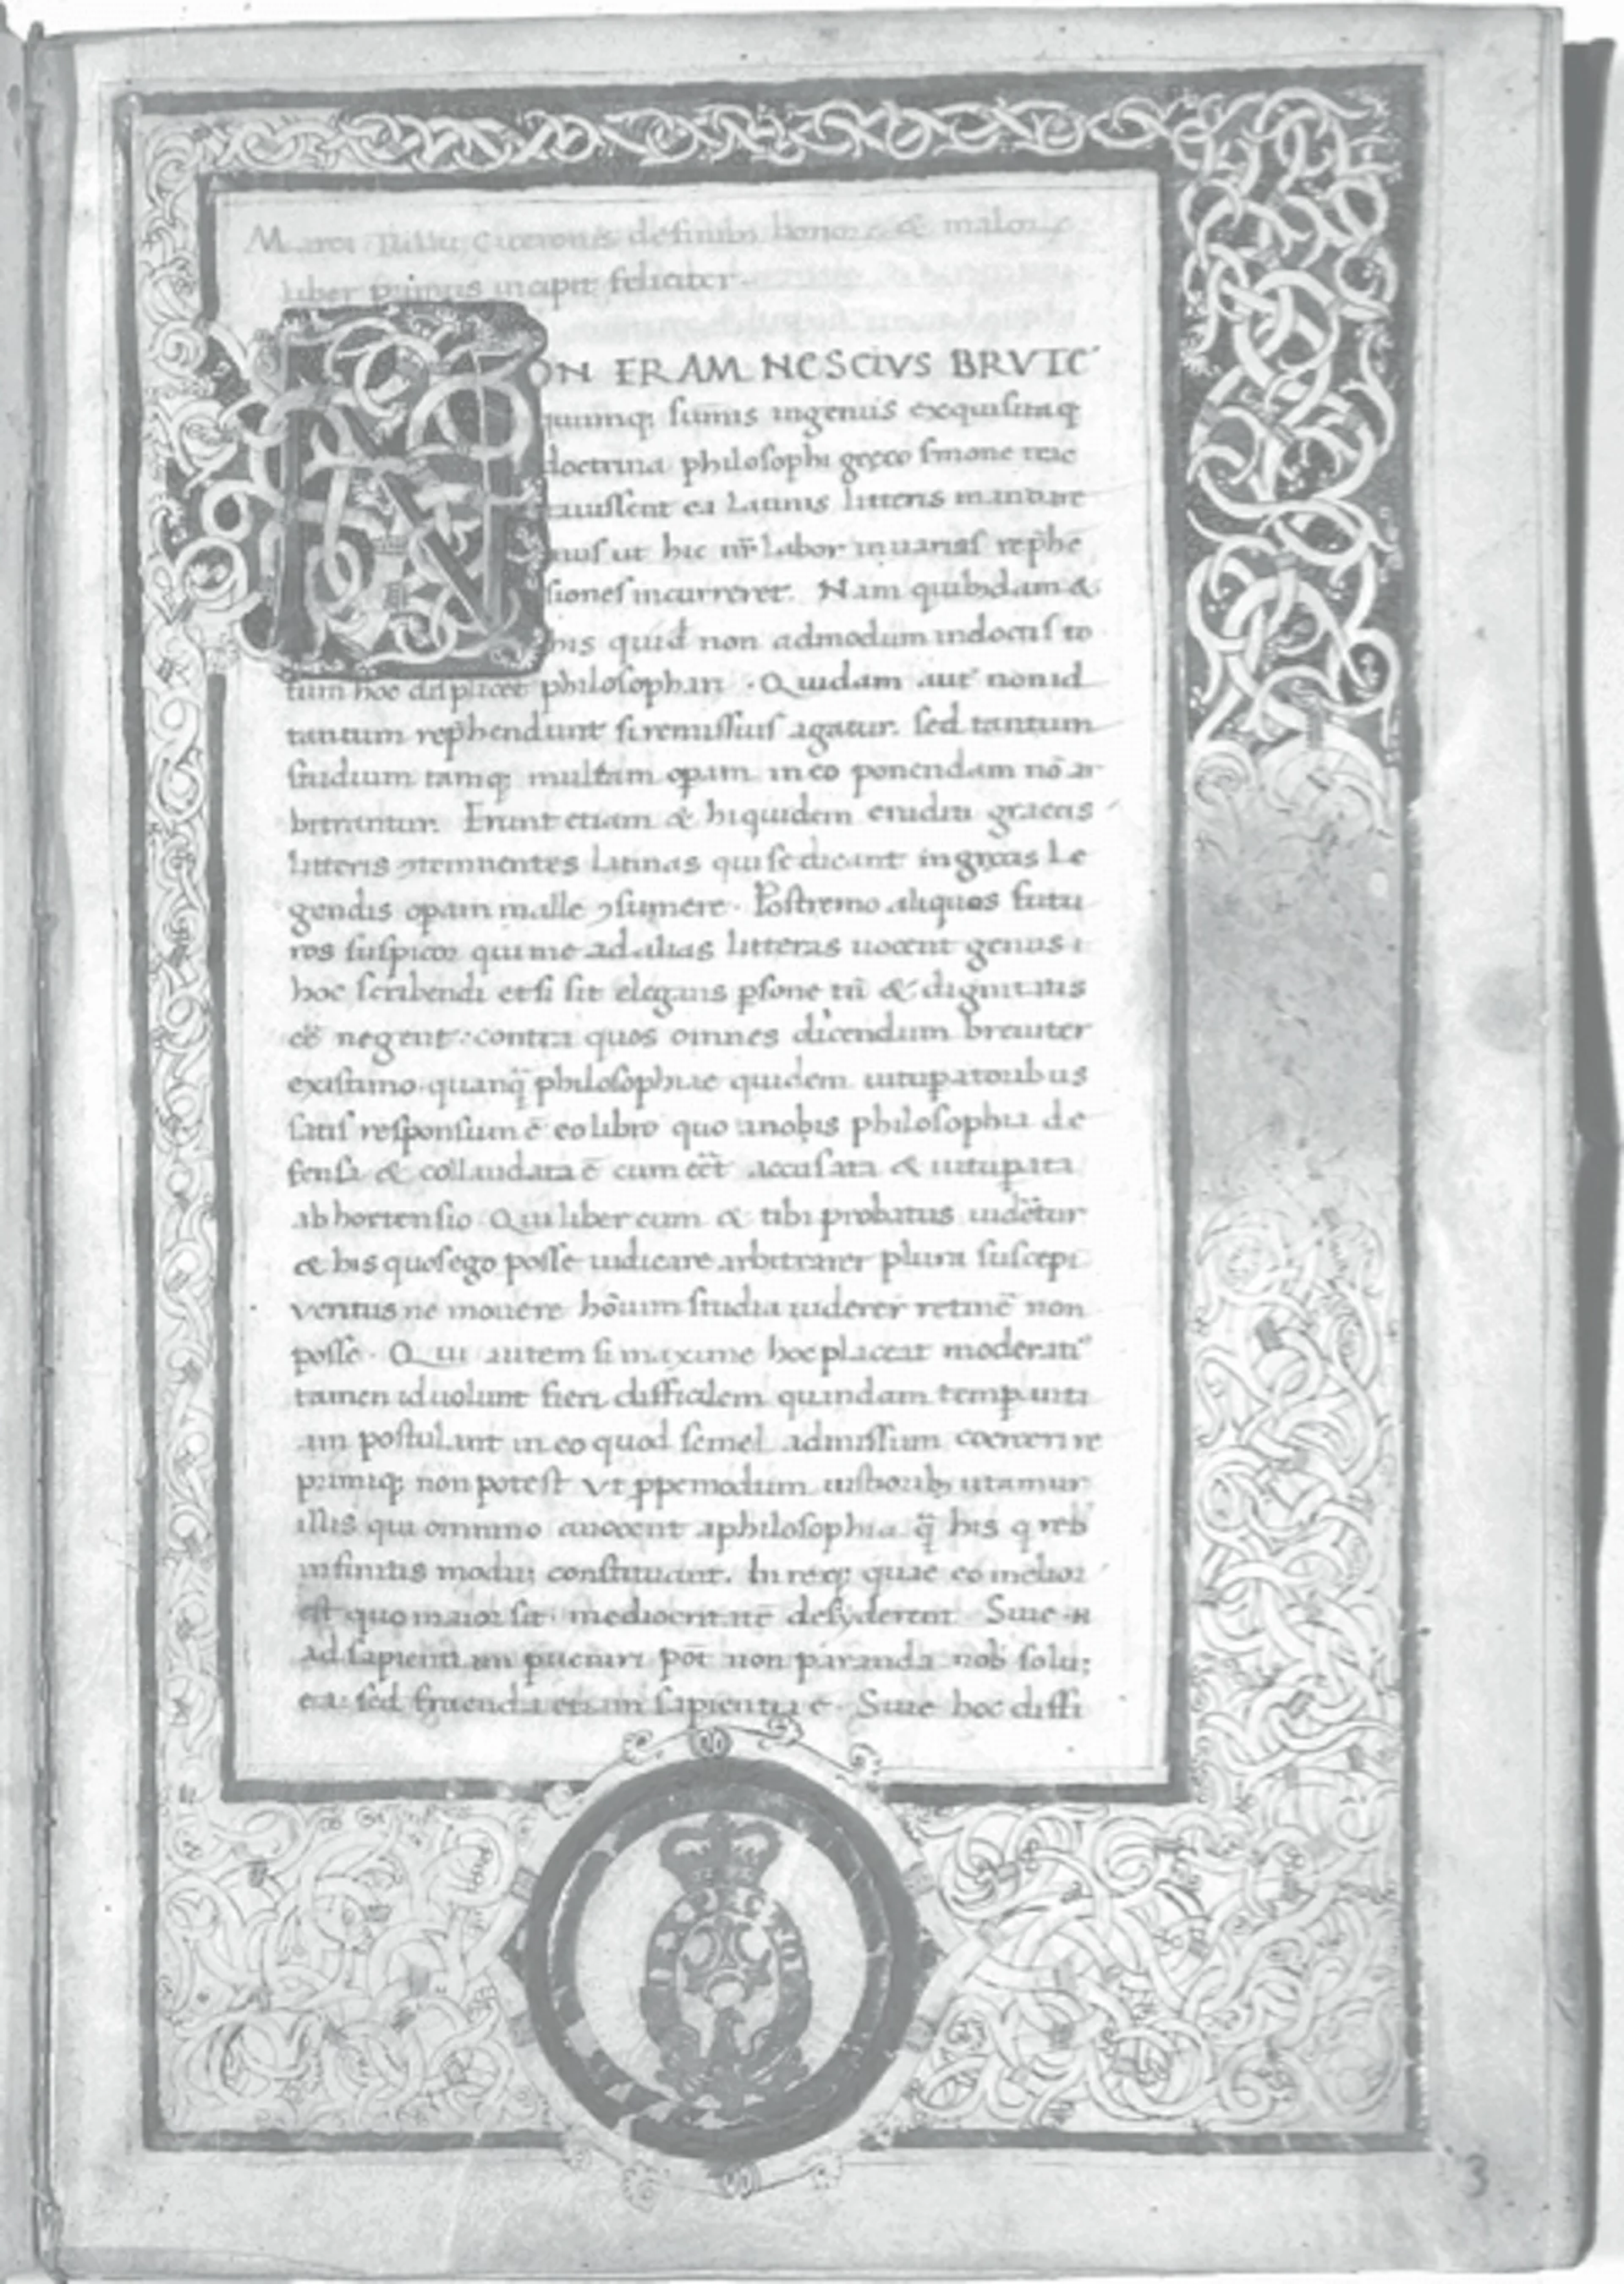 Marci Tullii Ciceronis de finib; bonoꝝ & maloꝝ
liber primus incipit feliciter.
NON ERAM NESCIVS BRVTE
quumq; sumis ingeniis exquisitaq;
doctrina philosophi greco smone trac
tauissent ea Latinis litteris mandare
mus ut hic nr̄ labor in uarias rephe
siones incurreret. Nam quibusdam &
his quid non admodum indoctis to
tum hoc displicet philosophari. Quidam aut non id
tantum rephendunt si remissius agatur. sed tantum
studium tamq; multam opam in eo ponendam nō ar
bitrantur. Erunt etiam & hi quidem eruditi graecis
litteris ꝯtemnentes Latinas qui se dicant in grecis Le
gendis opam malle ꝯsumere. Postremo aliquos futu
ros suspicor qui me ad alias litteras uocent genus i
hoc scribendi etsi sit elegans psone tn̄ & dignitatis
eē negent. contra quos omnes dicendum breuiter
existimo. quanq̄ philosophiae quidem uituperatoribus
satis responsum ē eo libro quo a nobis philosophia de
fensa & collaudata ē cum eēt accusata & uituperata
ab hortensio. Qui liber cum & tibi probatus uidētur
& his quos ego posse iudicare arbitrarer plura suscepi
veritus ne mouere hōium studia uiderer retinē non
posse. Qui autem si maxime hoc placeat moderati
tamen id uolunt fieri difficilem quandam tempanti
am postulant in eo quod semel admissum coerceri re
primiq; non potest vt ppemodum iustiorib; utamur
illis qui omnino auocent a philosophia q̄ his q reb
infinitis modum constituant. In req; quae eo melior
est quo maior sit mediocritatē desyderent. Siue .n
ad sapientiam pueniri pōt non paranda nob solu;
ea: sed fruenda etiam sapientia ē. Siue hoc diffi
3